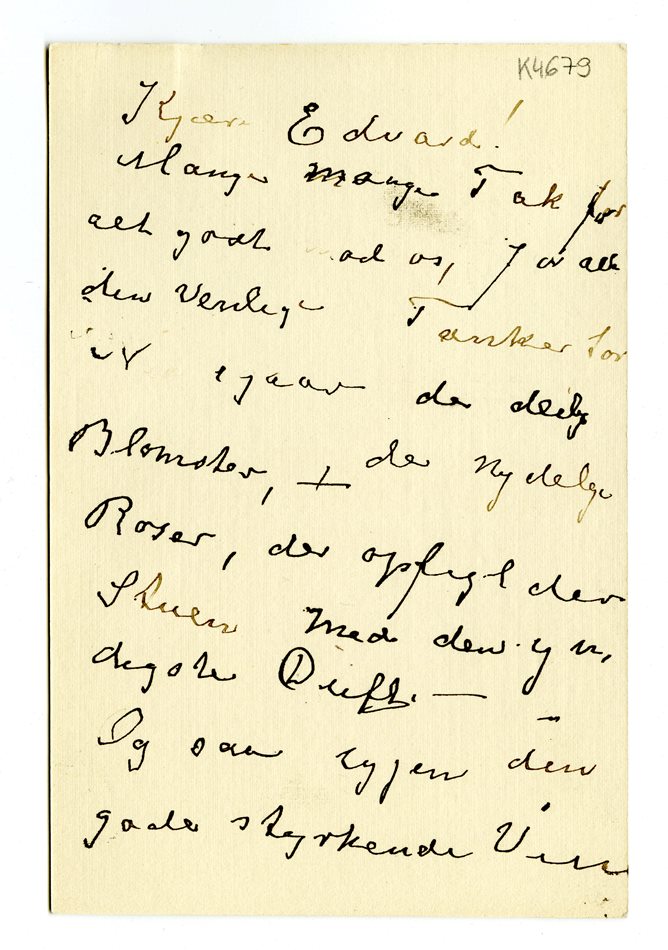 K4679
Kjære Edvard!
Mange mange Tak for
alt godt mod os, for alle
den Venlige Tanker for
igaar de deilige
Blomster, + de nydelige
Roser, der opfyldder
Stuen med den yn,
digste Duft. —
Og saa igjen den
gode styrkende Vin